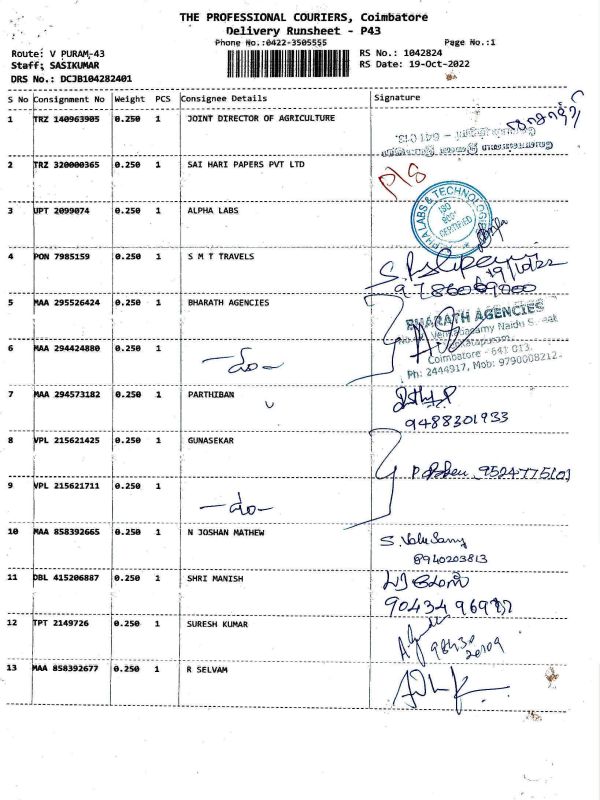 THE PROFESSIONAL COURIERS, Coimbatore
Delivery Runsheet - P43
Phone No.:0422-3505555
Page No.:1
Route: V PURAM-43
RS No.: 1042824
Staff: SASIKUMAR
RS Date: 19-Oct-2022
DRS No.: DCJB104282401
S No Consignment No Weight PCS Consignee Details Signature
1 TRZ 140963905 0.250 1 JOINT DIRECTOR OF AGRICULTURE
2 TRZ 320000365 0.250 1 SAI HARI PAPERS PVT LTD
3 UPT 2099074 0.250 1 ALPHA LABS
ALPHA LABS & TECHNOLOGIES
ISO
9001
CERTIFIED
4 PON 7985159 0.250 1 S M T TRAVELS
19/10/22
5 MAA 295526424 0.250 1 BHARATH AGENCIES
BHARATH AGENCIES
Coimbatore - 641 013.
Ph: 2444917, Mob: 9790008212
6 MAA 294424880 0.250 1
7 MAA 294573182 0.250 1 PARTHIBAN
9488301933
8 VPL 215621425 0.250 1 GUNASEKAR
9 VPL 215621711 0.250 1
10 MAA 858392665 0.250 1 N JOSHAN MATHEW
8940203813
11 DBL 415206887 0.250 1 SHRI MANISH
12 TPT 2149726 0.250 1 SURESH KUMAR
98430
20109
13 MAA 858392677 0.250 1 R SELVAM